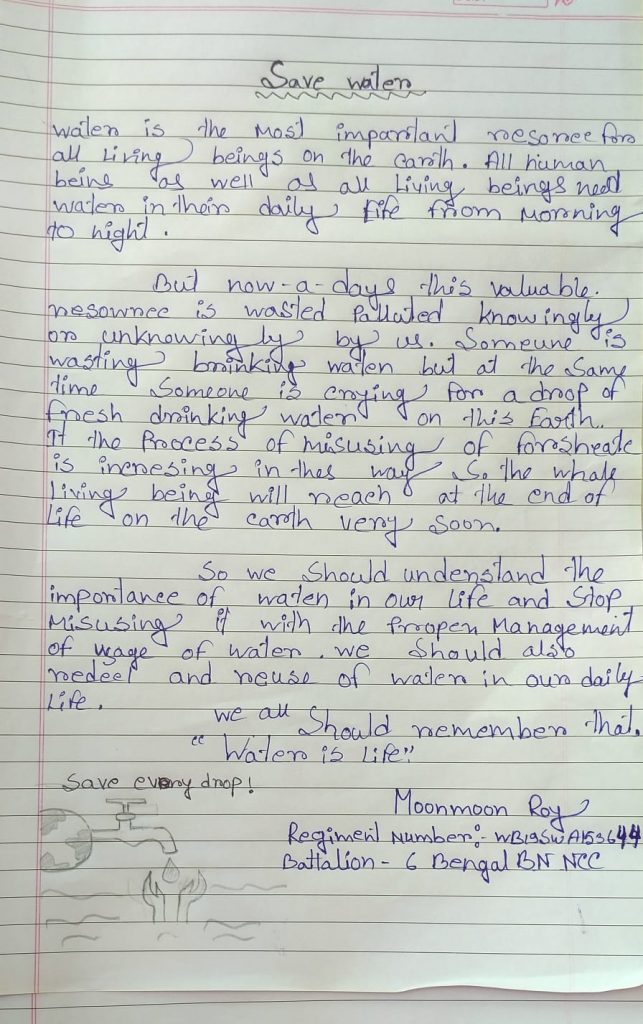 Save water
water is the Most impardant resonce for
all Living beings on the earth. All human
beins as well as all Living beings need
water in their daily life from Morning
to night.
But now-a-days this valuable.
resownce is wasted Palluted knowingly
or unknowingly by us. Someune is
wasting brinking water but at the Same
time Someone is crying for a drop of
fresh drinking water on this Earth.
If the Process of misusing of forsheate
is incresing in thes way So the whale
Living being will reach at the end of
Life on the earth very soon.
So we should understand the
importance of water in our life and Stop
Misusing it with the Propen Management
of usage of water. we should also
redeel and reuse of water in our daily
Life.
we all Should remember that.
"Water is Life"
Save every drop!
Moonmoon Roy
Regiment Number:- WB19SWA153644
Battalion - 6 Bengal BN NCC